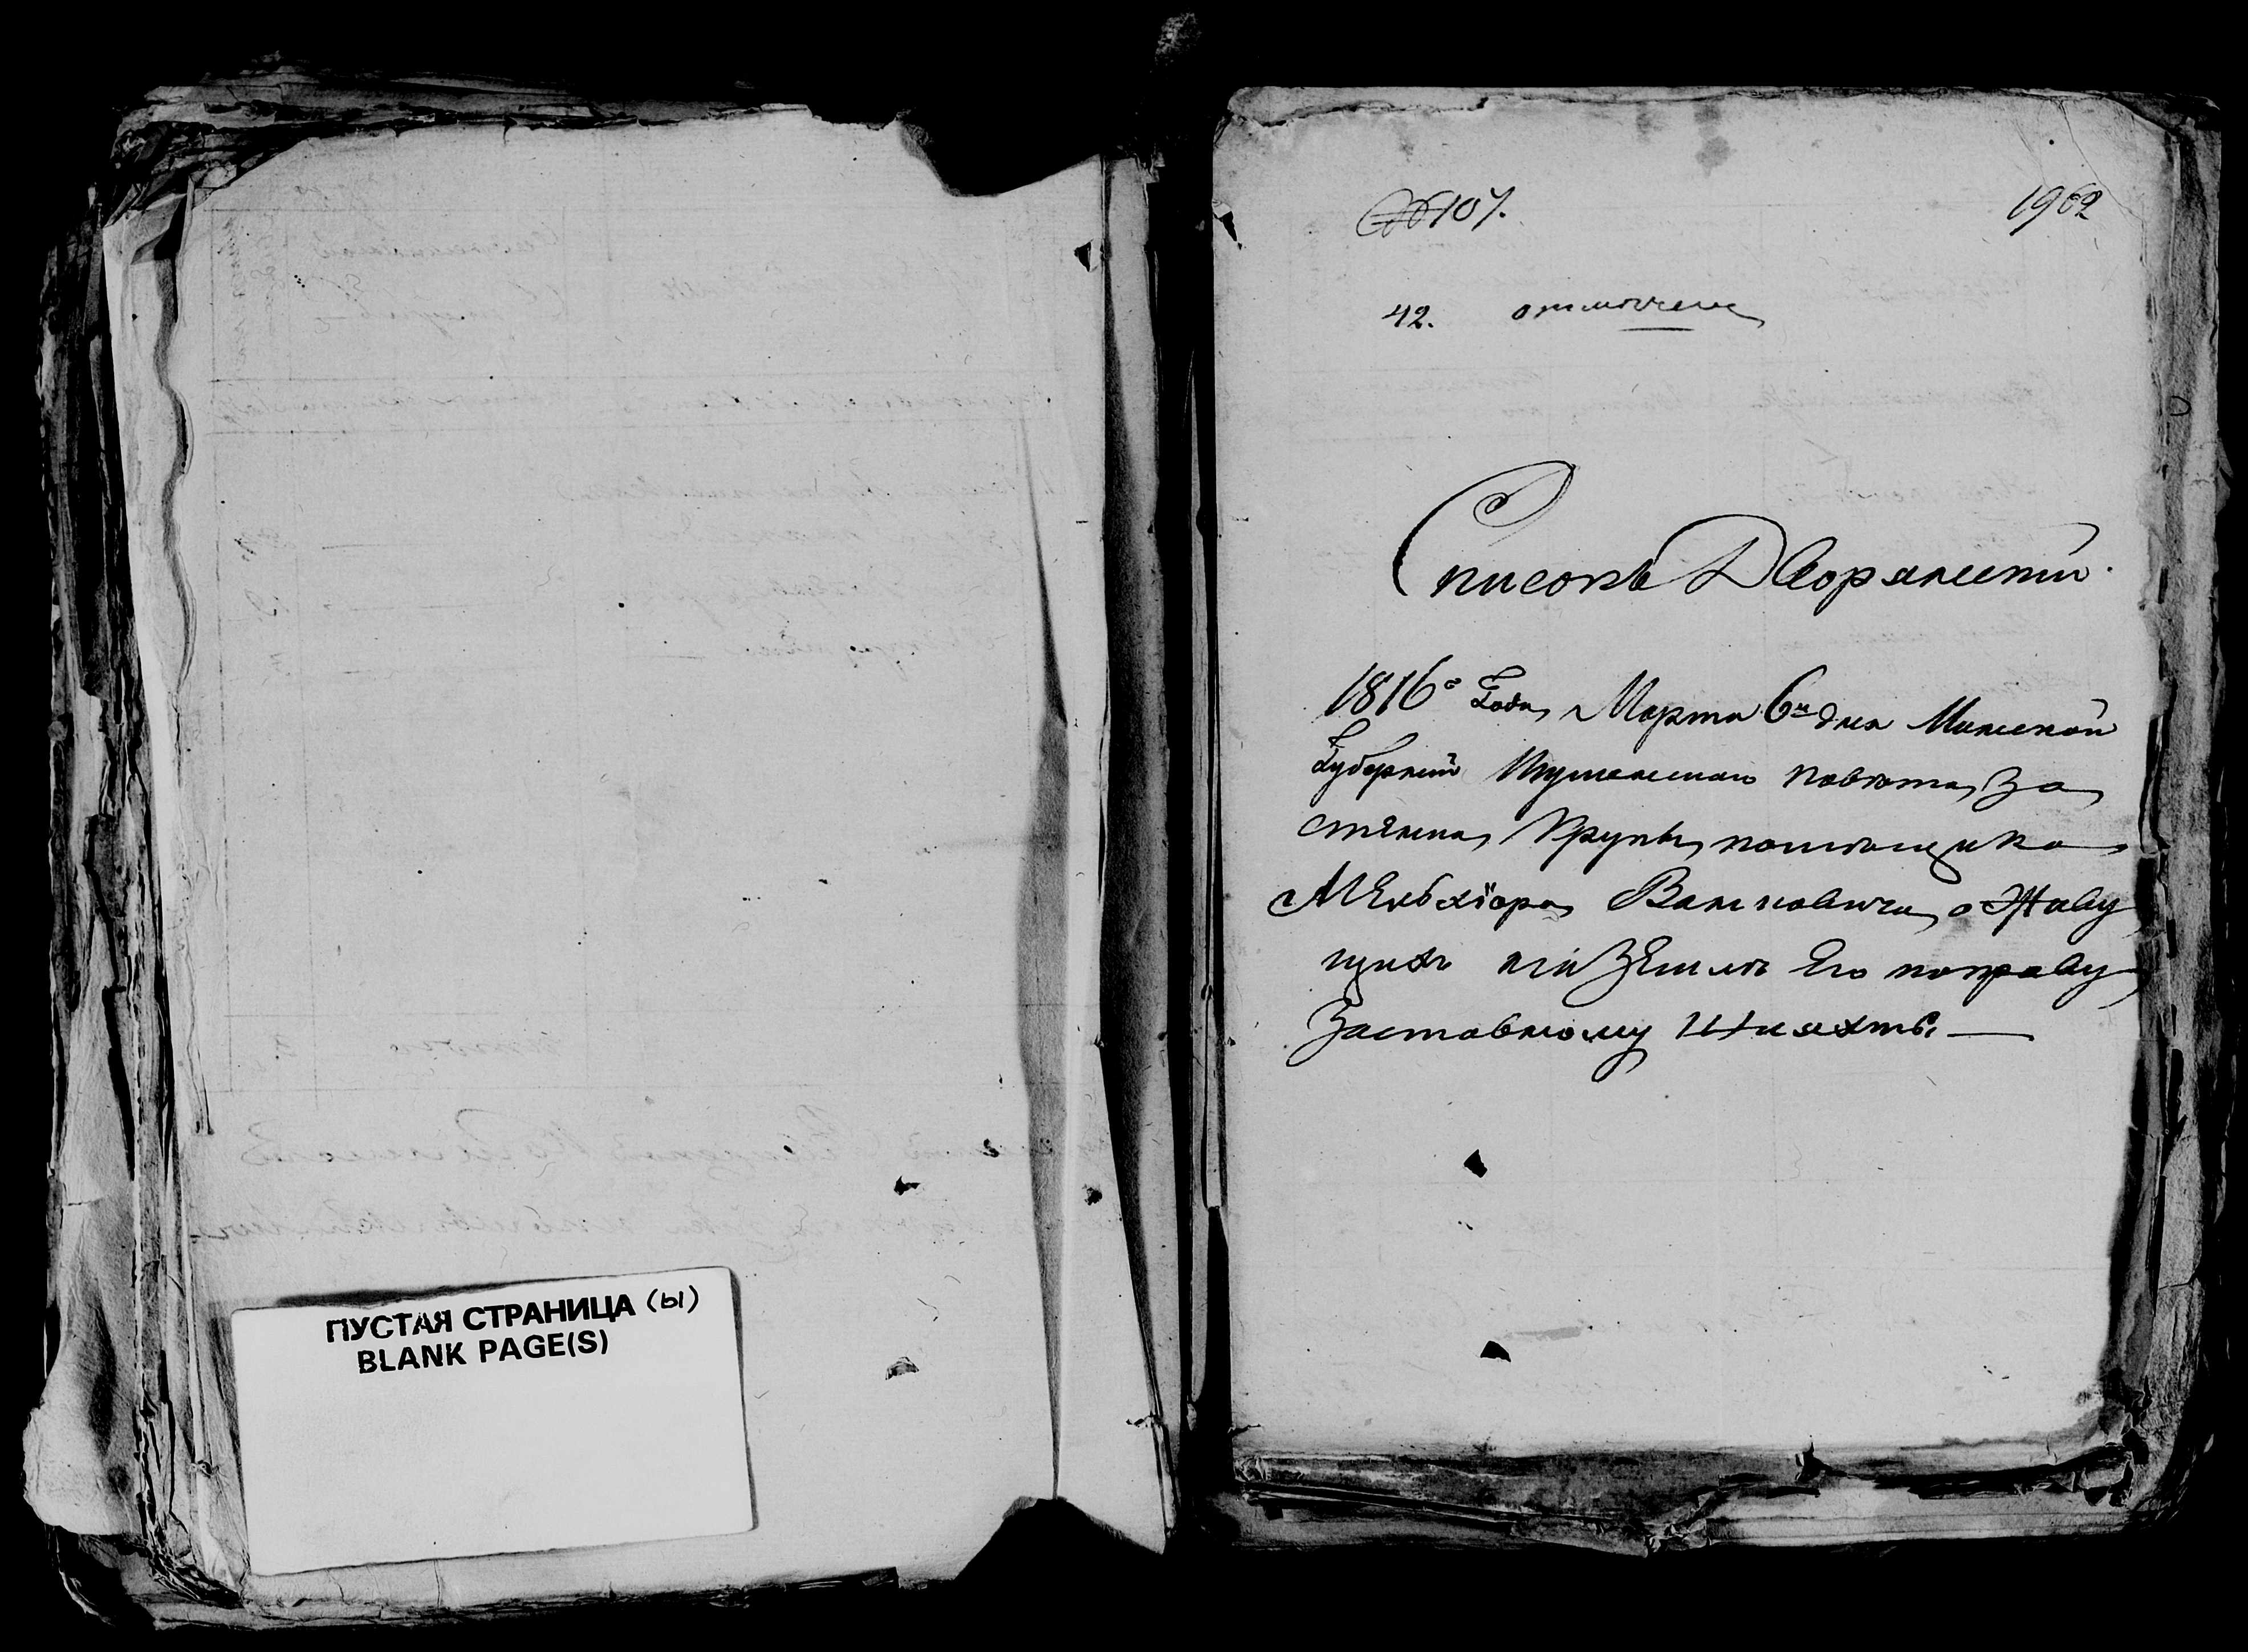 ПУСТАЯ СТРАНИЦА (ы)
BLANK PAGE(S)
№ 107.
1962
42. отмѣчено
Списокъ Дворянскій.
1816го Года Марта 6го дня Минской
Губерніи Игуменскаго повѣта За
стянка Крупы помѣщика
Мельхіора Ваньковича о Живу
щихъ на Землѣ Его по праву
Заставному Шляхты —